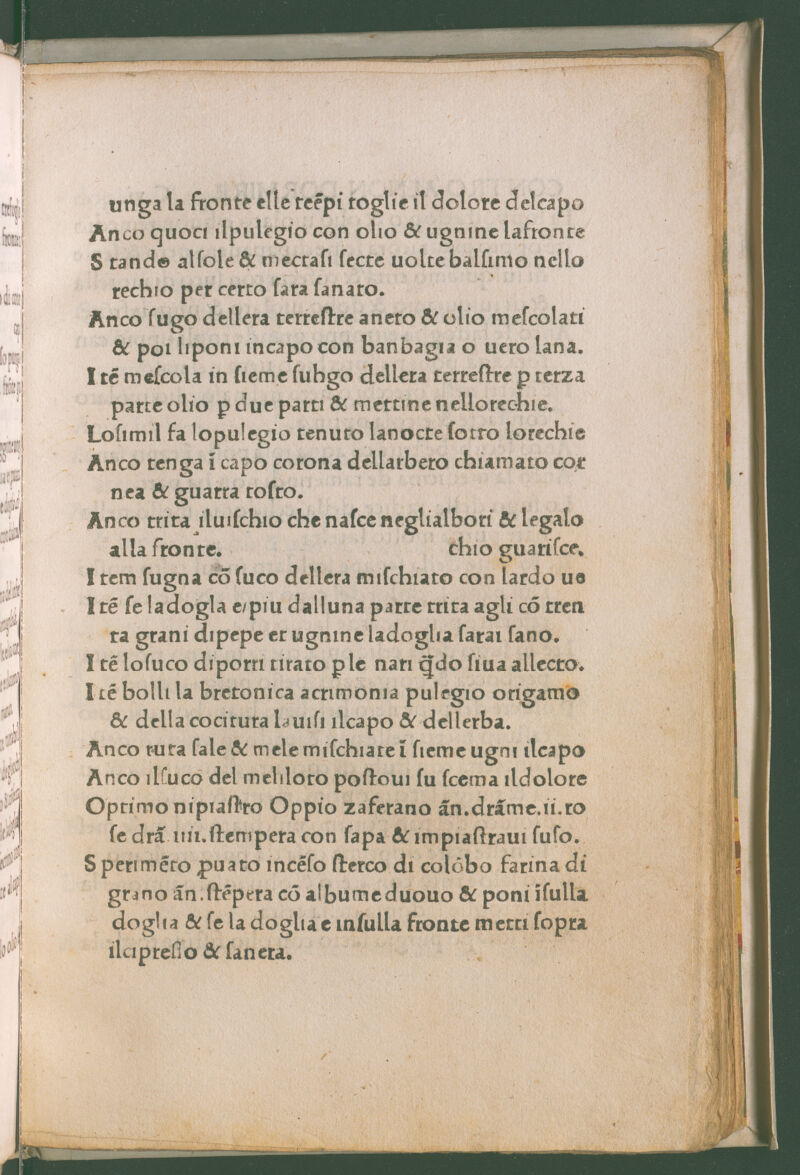 unga la fronte elle teēpi toglie il dolore delcapo
Anco quoci ilpulegio con olio & ugnine lafronte
Stando alſole & mectaſi ſecte uolte balſimo nello
rechio per certo ſara ſanato.
Anco ſugo dellera terreſtre aneto & olio meſcolati
& poi liponi incapo con banbagia o uero lana.
Itē meſcola in ſieme ſuhgo dellera terreſtre p terza
parte olio p due parti & mettine nellorechie.
Loſimil fa lopulegio tenuto lanocte ſotto lorechie
Anco tenga ī capo corona dellarbero chiamato cor
nea & guarra toſto.
Anco trita iluiſchio che naſce neglialbori & legalo
alla fronte. chio guariſce.
Item ſugna cō ſuco dellera miſchiato con lardo ue
Itē ſe ladogla e/piu dalluna parte trita agli cō tren
ta grani dipepe et ugnine ladoglia farai ſano.
Itē loſuco diporri tirato ple nari q̄do ſiua allecto.
Itē bolli la bretonica acrimonia pulegio origamo
& della cocitura lauiſi ilcapo & dellerba.
Anco ruta ſale & mele miſchiate ī ſieme ugni ilcapo
Anco ilſuco del meliloto poſtoui ſu ſcema ildolore
Optimo nipiaſtro Oppio zaferano ān.drāme.ii.ro
ſe drā iiii.ſtempera con ſapa & impiaſtraui ſuſo.
Sperimēto puato incēſo ſterco di colōbo farina di
grano ān.ſtēpera cō albume duouo & poni īſulla
doglia & ſe la doglia e inſulla fronte metti ſopra
ilcipreſſo & ſanera.